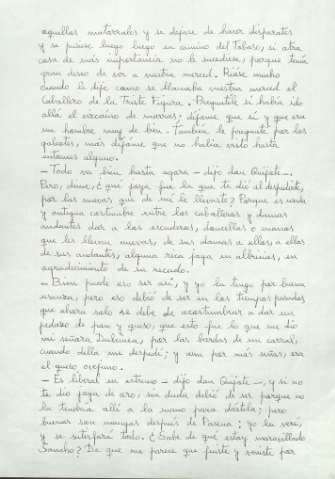 aquellos matorrales y se dejase de hacer disparates
y se pusiese luego luego en camino del Toboso, si otra
cosa de más importancia no le sucediese, porque tenía
gran deseo de ver a vuestra merced. Rióse mucho
cuando le dije como se llamaba vuestra merced el
Caballero de la Triste Figura. Preguntéle si había ido
allá el vizcaíno de marras; díjome que sí y que era
un hombre muy de bien. También le pregunté por los
galeotes, mas díjome que no había visto hasta
entonces alguno.
- Todo va bien hasta agora - dijo don Quijote -.
Pero, dime, ¿qué joya fue la que te dio al despedirte,
por las nuevas que de mí le llevaste? Porque es usada
y antigua costumbre entre los caballeros y damas
andantes dar a los escuderos, doncellas o enanos
que les llevan nuevas, de sus damas a ellos, a ellas
de sus andantes, alguna rica joya en albricias, en
agradecimiento de su recado.
- Bien puede eso ser así, y yo la tengo por buena
usanza; pero eso debió de ser en los tiempos pasados
que ahora sólo se debe de acostumbrar a dar un
pedazo de pan y queso, que esto fue lo que me dio
mi señora Dulcinea, por las bardas de un corral,
cuando della me despedí; y aun por más señas, era
el queso ovejuno.
- Es liberal en extremo - dijo don Quijote -, y si no
te dio joya de oro, sin duda debió de ser porque no
la tendría allí a la mano para dártela; pero
buenas son mangas después de Pascua: yo la veré,
y se satisfará todo. ¿Sabe de qué estoy maravillado
Sancho? De que me parece que fuiste y veniste por